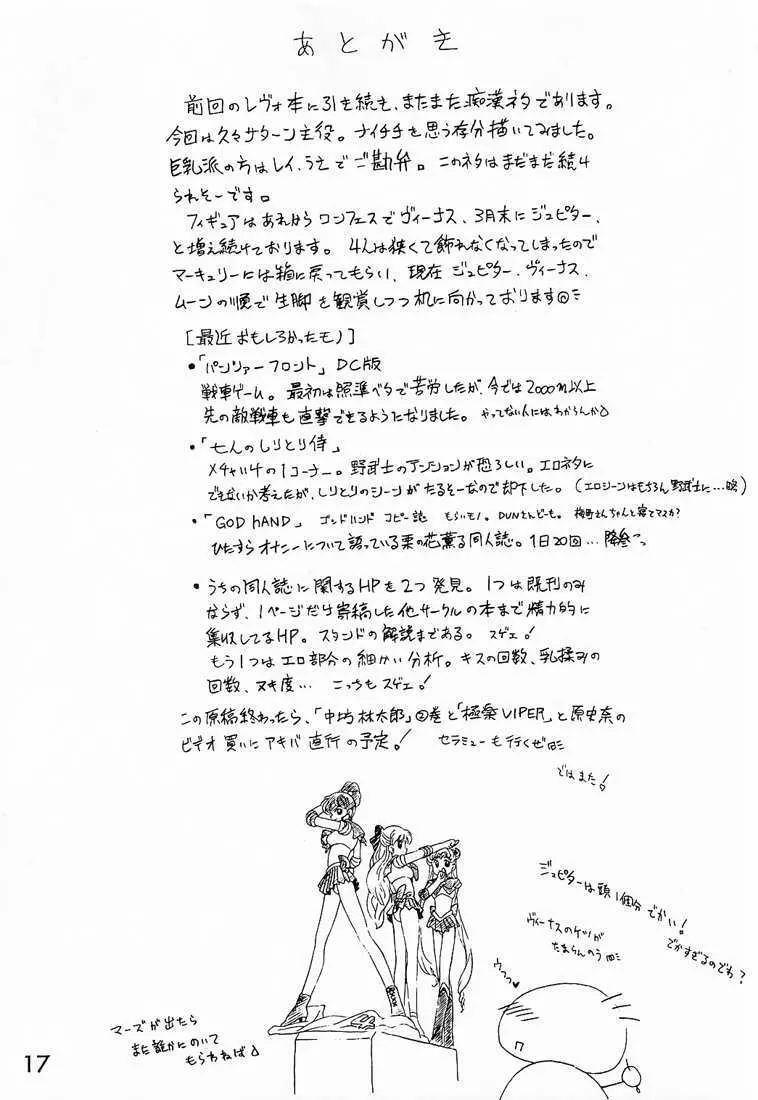 あとがき
前回のレヴォ本に引き続き、またまた痴漢ネタであります。
今回は久々サターン主役。ナイチチを思う存分描いてみました。
巨乳派の方はレイ、うえでご勘弁。このネタはまだまだ続け
られそーです。
フィギュアはあれからワンフェスでヴィーナス、3月末にジュピター、
と増え続けております。4人は狭くて飾れなくなってしまったので
マーキュリーには箱に戻ってもらい、現在ジュピター、ヴィーナス、
ムーンの順で生脚を観賞しつつ机に向かっております
[最近おもしろかったモノ]
•「パンツァーフロント」DC版
戦車ゲーム。最初は照準ベタで苦労したが、今では2000m以上
先の敵戦車も直撃できるようになりました。やってない人にはわからんか
•「七人のしりとり侍」
メチャイケの1コーナー。野武士のテンションが恐ろしい。エロネタに
できないか考えたが、しりとりのシーンがたるそーなので却下した。(エロシーンはもちろん野武士に…略)
•「GOD HAND」ゴッドハンド コピー誌 もらいモノ。DUNさんどーも。梅野さんちゃんと寝てマスか?
ひたすらオナニーについて語っている栗の花薫る同人誌。1日20回…降参っ
•うちの同人誌に関するHPを2つ発見。1つは既刊のみ
ならず、1ページだけ寄稿した他サークルの本まで精力的に
集収してるHP。スタンドの解説まである。スゲェ!
もう1つはエロ部分の細かい分析。キスの回数、乳揉みの
回数、ヌキ度… こっちもスゲェ!
この原稿終わったら、「中坊林太郎」②巻と「極楽VIPER」と原史奈の
ビデオ買いにアキバ直行の予定!セラミューも行くぜ
ではまた!
ジュピターは頭1個分でかい!
でかすぎるのでわ?
ヴィーナスのケツが
たまらんのう
ウウッ♥
マーズが出たら
また誰かにのいて
もらわねば
17